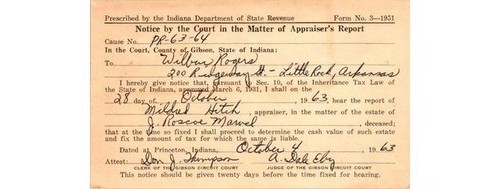 Prescribed by the Indiana Department of State Revenue Form No. 3—1951
Notice by the Court in the Matter of Appraiser's Report
Cause No. PR-63-64
In the Court, County of Gibson, State of Indiana:
To Wilbur Rogers
200 Ridgeway Dr. - Little Rock, Arkansas
I hereby give notice that, pursuant to Sec. 10, of the Inheritance Tax Law of
the State of Indiana, approved March 6, 1931, I shall on the
28 day of October, 1963, hear the report of
Mildred Hitch, appraiser, in the matter of the estate of
J. Roscoe Marvel, deceased;
that at the time so fixed I shall proceed to determine the cash value of such estate
and fix the amount of tax for which the same is liable.
Dated at Princeton, Indiana, October 4, 1963
Attest: Don J. Thompson A. Dale Eby
CLERK OF THE GIBSON CIRCUIT COURT JUDGE OF THE GIBSON CIRCUIT COURT
This notice should be given twenty days before the time fixed for hearing.